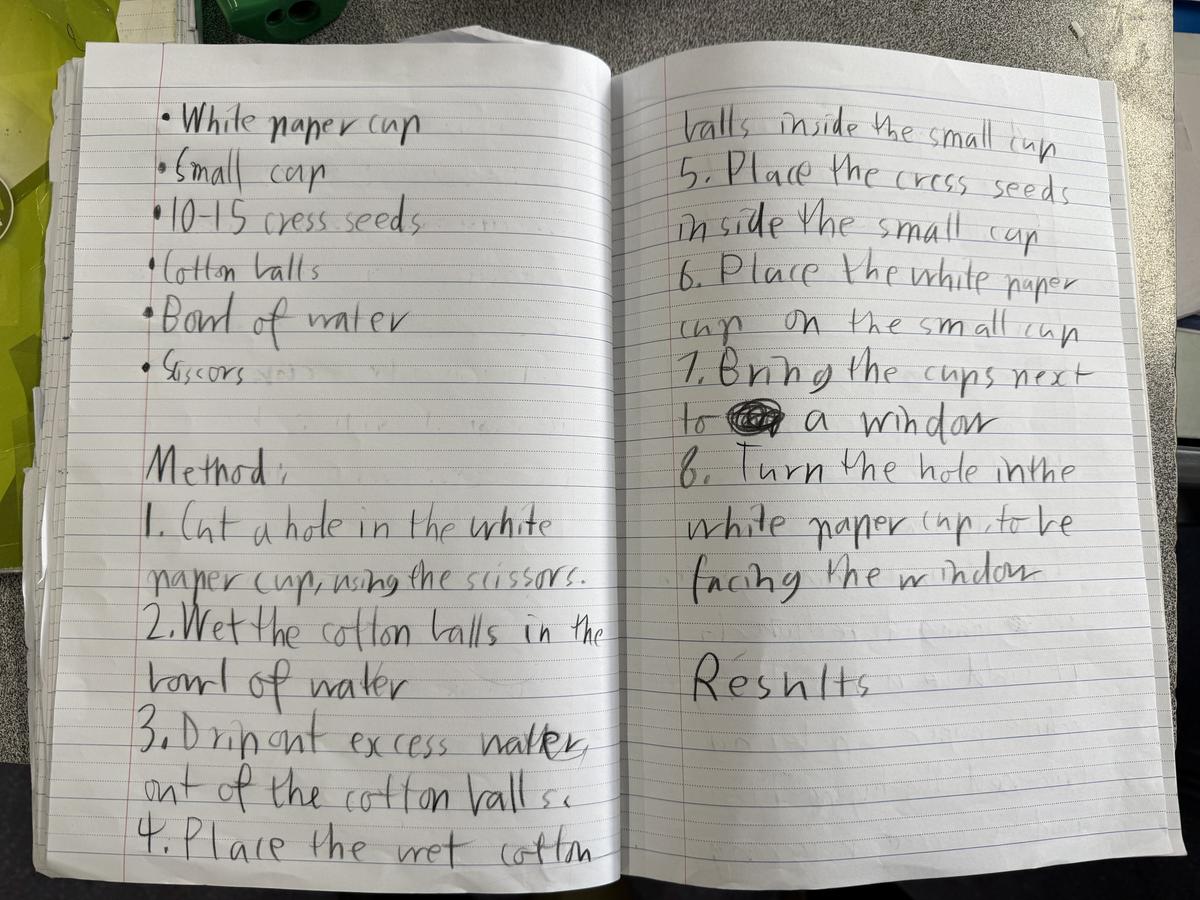 • White paper cup
• Small cup
• 10-15 cress seeds
• Cotton balls
• Bowl of water
• Sciscors
Method:
1. Cut a hole in the white
paper cup, using the scissors.
2. Wet the cotton balls in the
bowl of water
3. Drip out excess water,
out of the cotton balls.
4. Place the wet cotton
balls inside the small cup
5. Place the cress seeds
inside the small cup
6. Place the white paper
cup on the small cup
7. Bring the cups next
to a window
8. Turn the hole in the
white paper cup, to be
facing the window
Results